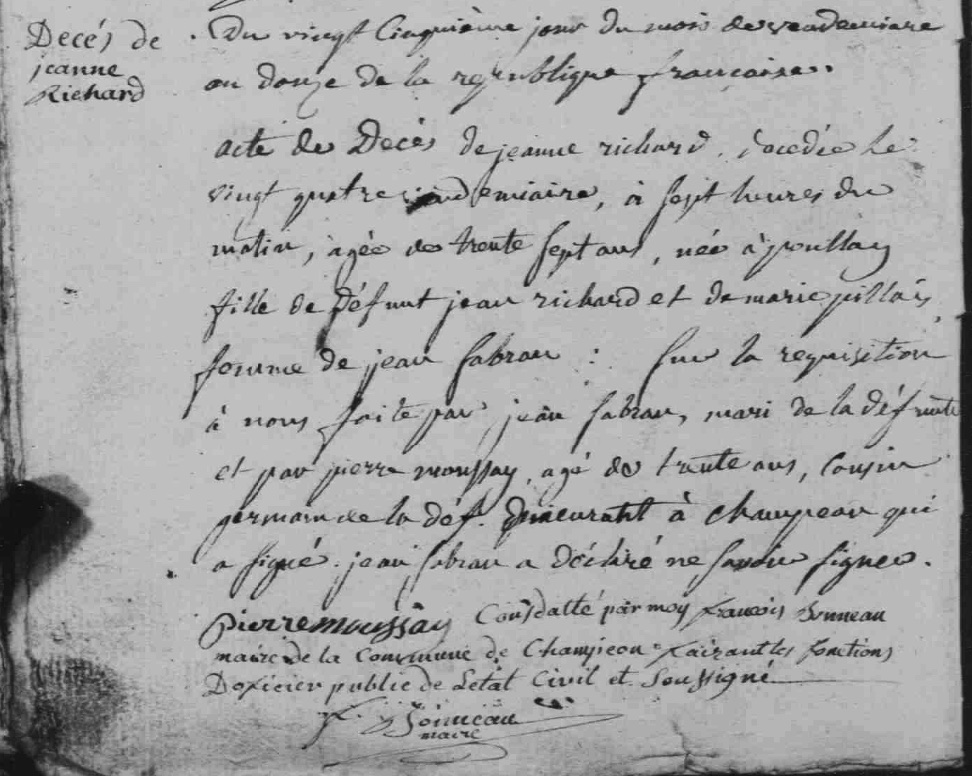 Decés de
jeanne
Richard
Du vingt Cinquième jour du mois de vendemiare
an douze de la republique francaise.
acte de Decès de jeanne richard, décédée le
vingt quatre vendemiaire, à sept heures du
matin, agée de trente sept ans, née à pouillay
fille de défunt jean richard et de marie pillais,
femme de jean sabran : sur la requisition
à nous faite par jean sabran, mari de la défunte
et par pierre moussay, agé de trente ans, cousin
germain de la déf. demeurant à champeon qui
a signé. jean sabran a déclaré ne savoir signer.
pierre moussay Consdatté par moy francois Jonneau
maire de la Commune de Champeon fairant les fonctions
Doficier public de Letat Civil et Soussigné
f. Jonneau
maire